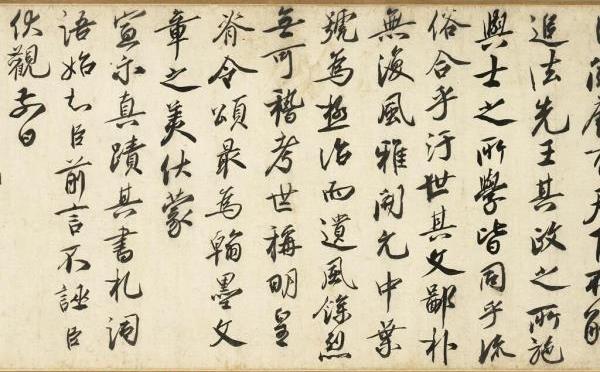 唐有天下不能
追法先王其政之所施
與士之所學皆同乎流
俗合乎汙世其文鄙朴
無復風雅開元中葉
號為極治而遺風餘烈
無可稽考世稱明皇
脊令頌最為翰墨文
章之美伏蒙
宣示真蹟其書札詞
語始知臣前言不誣臣
伏觀